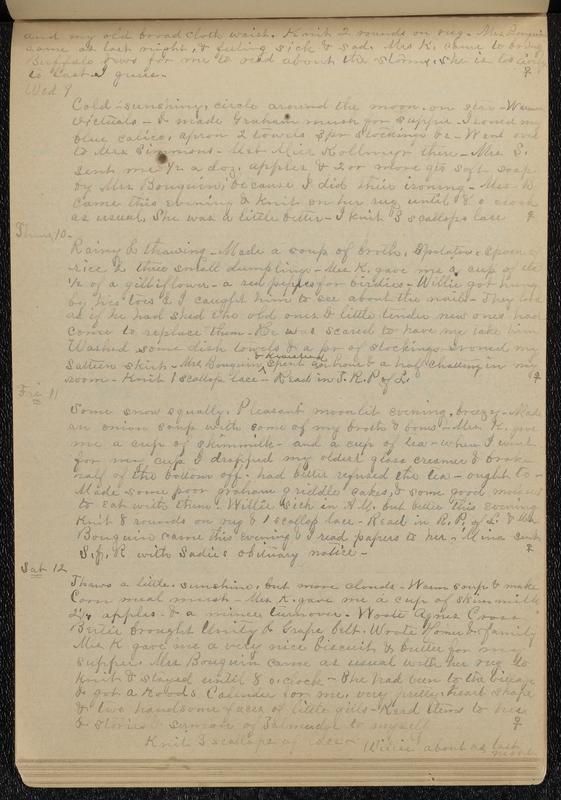 and my old broad cloth waist. Knit 2 rounds on rug. Mrs Bouquin
came as last night, & feeling sick & sad. Mrs K. came to bring
Buffalo News for me to read about the storm, she is
to Easter I guess.
Wed 9
Cold - sunshiny, circle around the moon, on star - Warm
victuals - & made Graham mush for supper. Ironed my
blue calico, apron 2 towels 3pr stockings &c - Went over
to Mrs Simmons - Met Miss Kollmyr then - Mrs S.
sent me 1/2 a doz. apples & 2 or more qts soft soap
by Mrs Bouquin, because I did their ironing - Mrs B
came this evening & knit on her rug until 8 o clock
as usual. She was a little better - I knit 3 scallops lace
Thurs 10.
Rainy & thawing - Made a soup of broth, 2 potatoes, spoon of
rice & three small dumplings - Mrs K. gave me a cup of it &
1/2 of a gilliflower - a red pepper for birdies - Willie got hung
by his toes & I caught him to see about the nails - They look
as if he had shed the old ones & little tender new ones had
come to replace them - He was scared to have me take him
Washed some dish towels & a pr of stockings. Ironed my
satteen skirt - Mrs Bouquin & Kraisted spent an hour & a half chatting in my
room - Knit 1 scallop lace - Read in J. R. P of L.
Fri 11
Some snow squally. Pleasant moonlit evening, breezy - Made
an onion soup with some of my broth & bone - Mrs. K. gave
me a cup of skimmilk - and a cup of tea - when I went
for my cup & dropped my older glass creamer & broke
half of the bottom off. had better refused the tea - ought to -
Made some poor graham griddle cakes, & some good molasses
to eat with them. Willie sick in A.M. but better this evening
Knit 8 rounds on rug & 1 scallop lace - Read in R. P. of L. & Mrs
Bouquin came this evening & I read papers to her - Mina sent
S. J. R with Sadies obituary notice -
Sat 12
Thaws a little, sunshine, but more clouds - Warm soup & make
Corn meal mush - Mrs. K. gave me a cup of skim milk
2 1/2 apples - & a mince turnover. Wrote Agnes Cross
Bertie brought Unity & Grape belt. Wrote Homer & family
Mrs K gave me a very nice biscuit & butter for my
supper. Mrs Bouquin came as usual with her rug to
knit & stayed until 8 o. clock - She had been to the village
& got a Hoods Calendar for me, very pretty, heart shape
& two handsome faces of little girls - Read items to her
& stories & sermon of Talmadge to myself
Knit 3 scallops of lace - Willie about as last
night